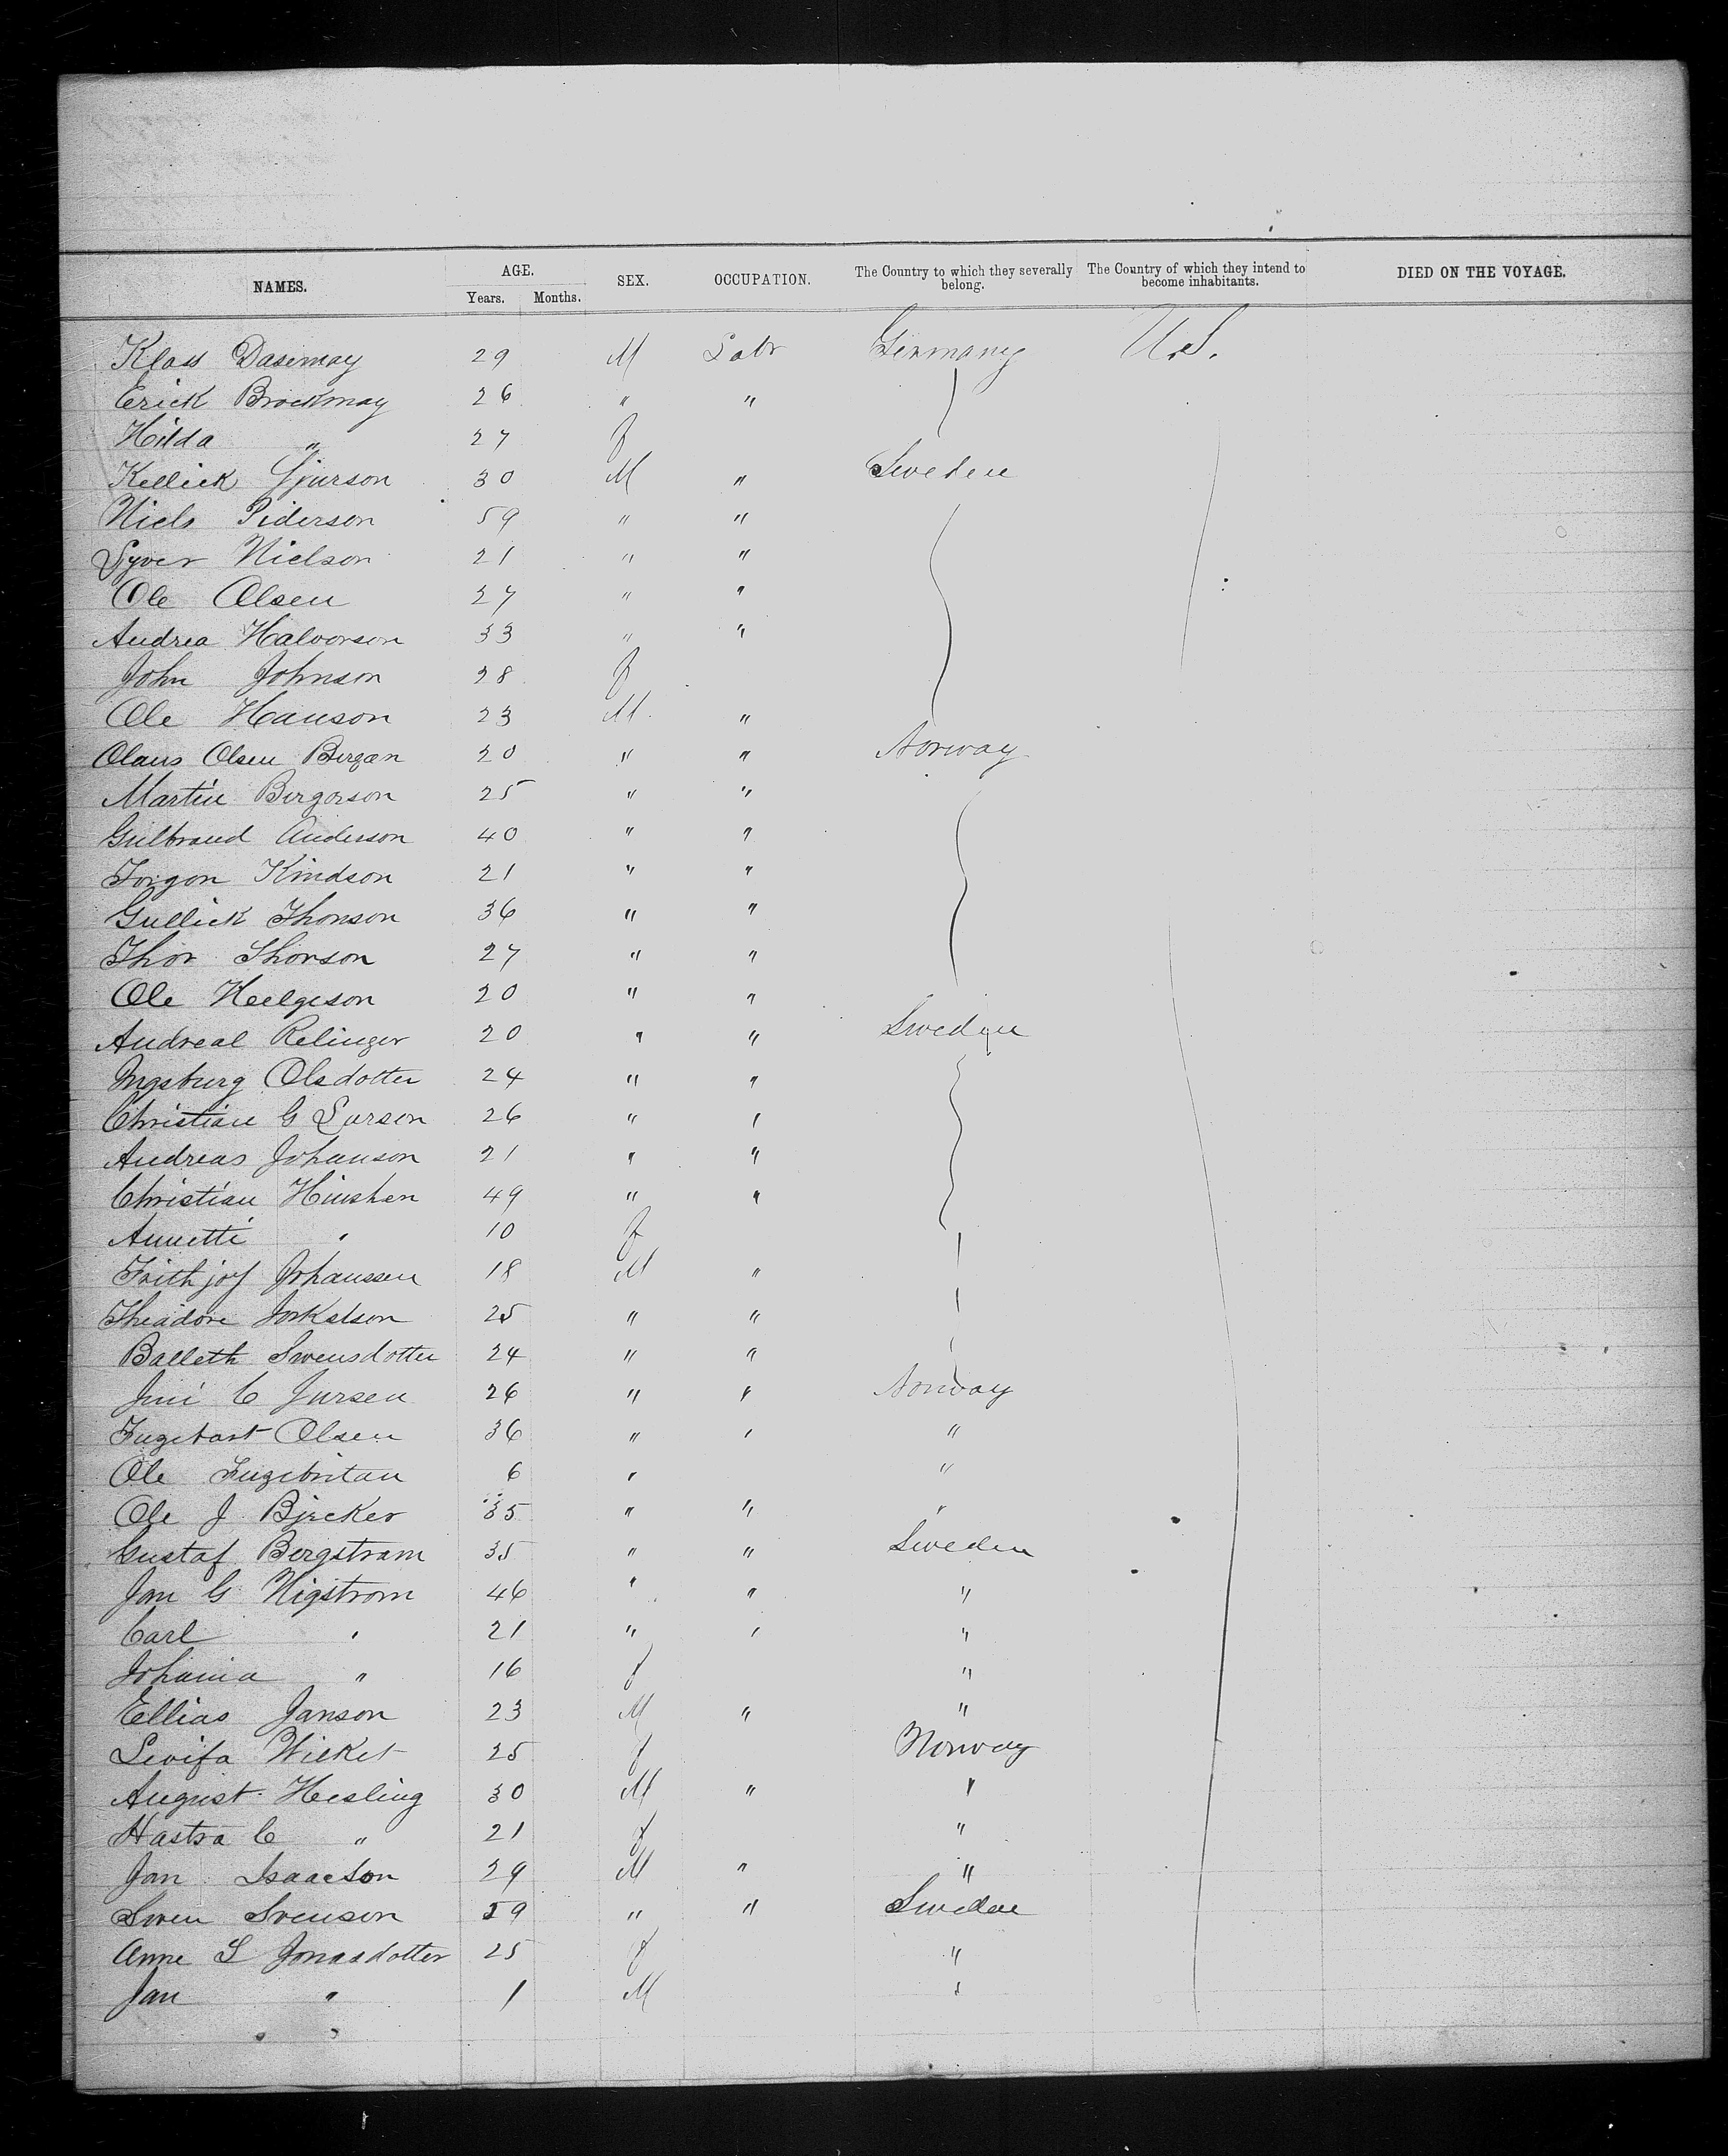 NAMES. AGE. Years. Months. SEX. OCCUPATION. The Country to which they severally belong. The Country of which they intend to become inhabitants. DIED ON THE VOYAGE.
Klass Dasemay 29 M Labr Germany U.S.
Erick Brockmay 26 " "
Hilda " 27 f
Kellick Gjurson 30 M " Sweden
Niels Piderson 59 " "
Syver Nielson 21 " "
Ole Olsen 27 " "
Andrea Halvorson 33 " "
John Johnson 28 f
Ole Hanson 23 M "
Olaus Olsen Bergan 20 " " Norway
Martin Bergerson 25 " "
Gulbrand Anderson 40 " "
Torgon Kindson 21 " "
Gullick Thonson 36 " "
Thor Thorson 27 " "
Ole Heelgeson 20 " "
Andreal Relinger 20 " " Sweden
Ingsburg Olsdotter 24 " "
Christian G Larson 26 " "
Andreas Johanson 21 " "
Christian Hinshen 49 " "
Annetti " 10 f
Frithjof Johanssen 18 M "
Theadore Torkelson 25 " "
Balleth Swensdotter 24 " "
Jini C Jursen 26 " " Norway
Ingebart Olsen 36 " " "
Ole Ingebritan 6 " "
Ole J Bjrcker 35 " " "
Gustaf Bergstram 35 " " Sweden
Jan G Higstrom 46 " " "
Carl " 21 " " "
Johania " 16 f "
Ellias Janson 23 M " "
Lovifa Wicket 25 f Norway
August Hesling 30 M " "
Hastra C " 21 f "
Jan Isaacson 29 M " "
Swen Svenson 59 " " Sweden
Anne L Jonasdotter 25 f "
Jan " 1 M "
" "